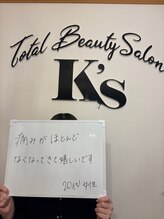 Total Beauty Salon
K's
痛みがほとんど
なくなってきて嬉しいです
20代